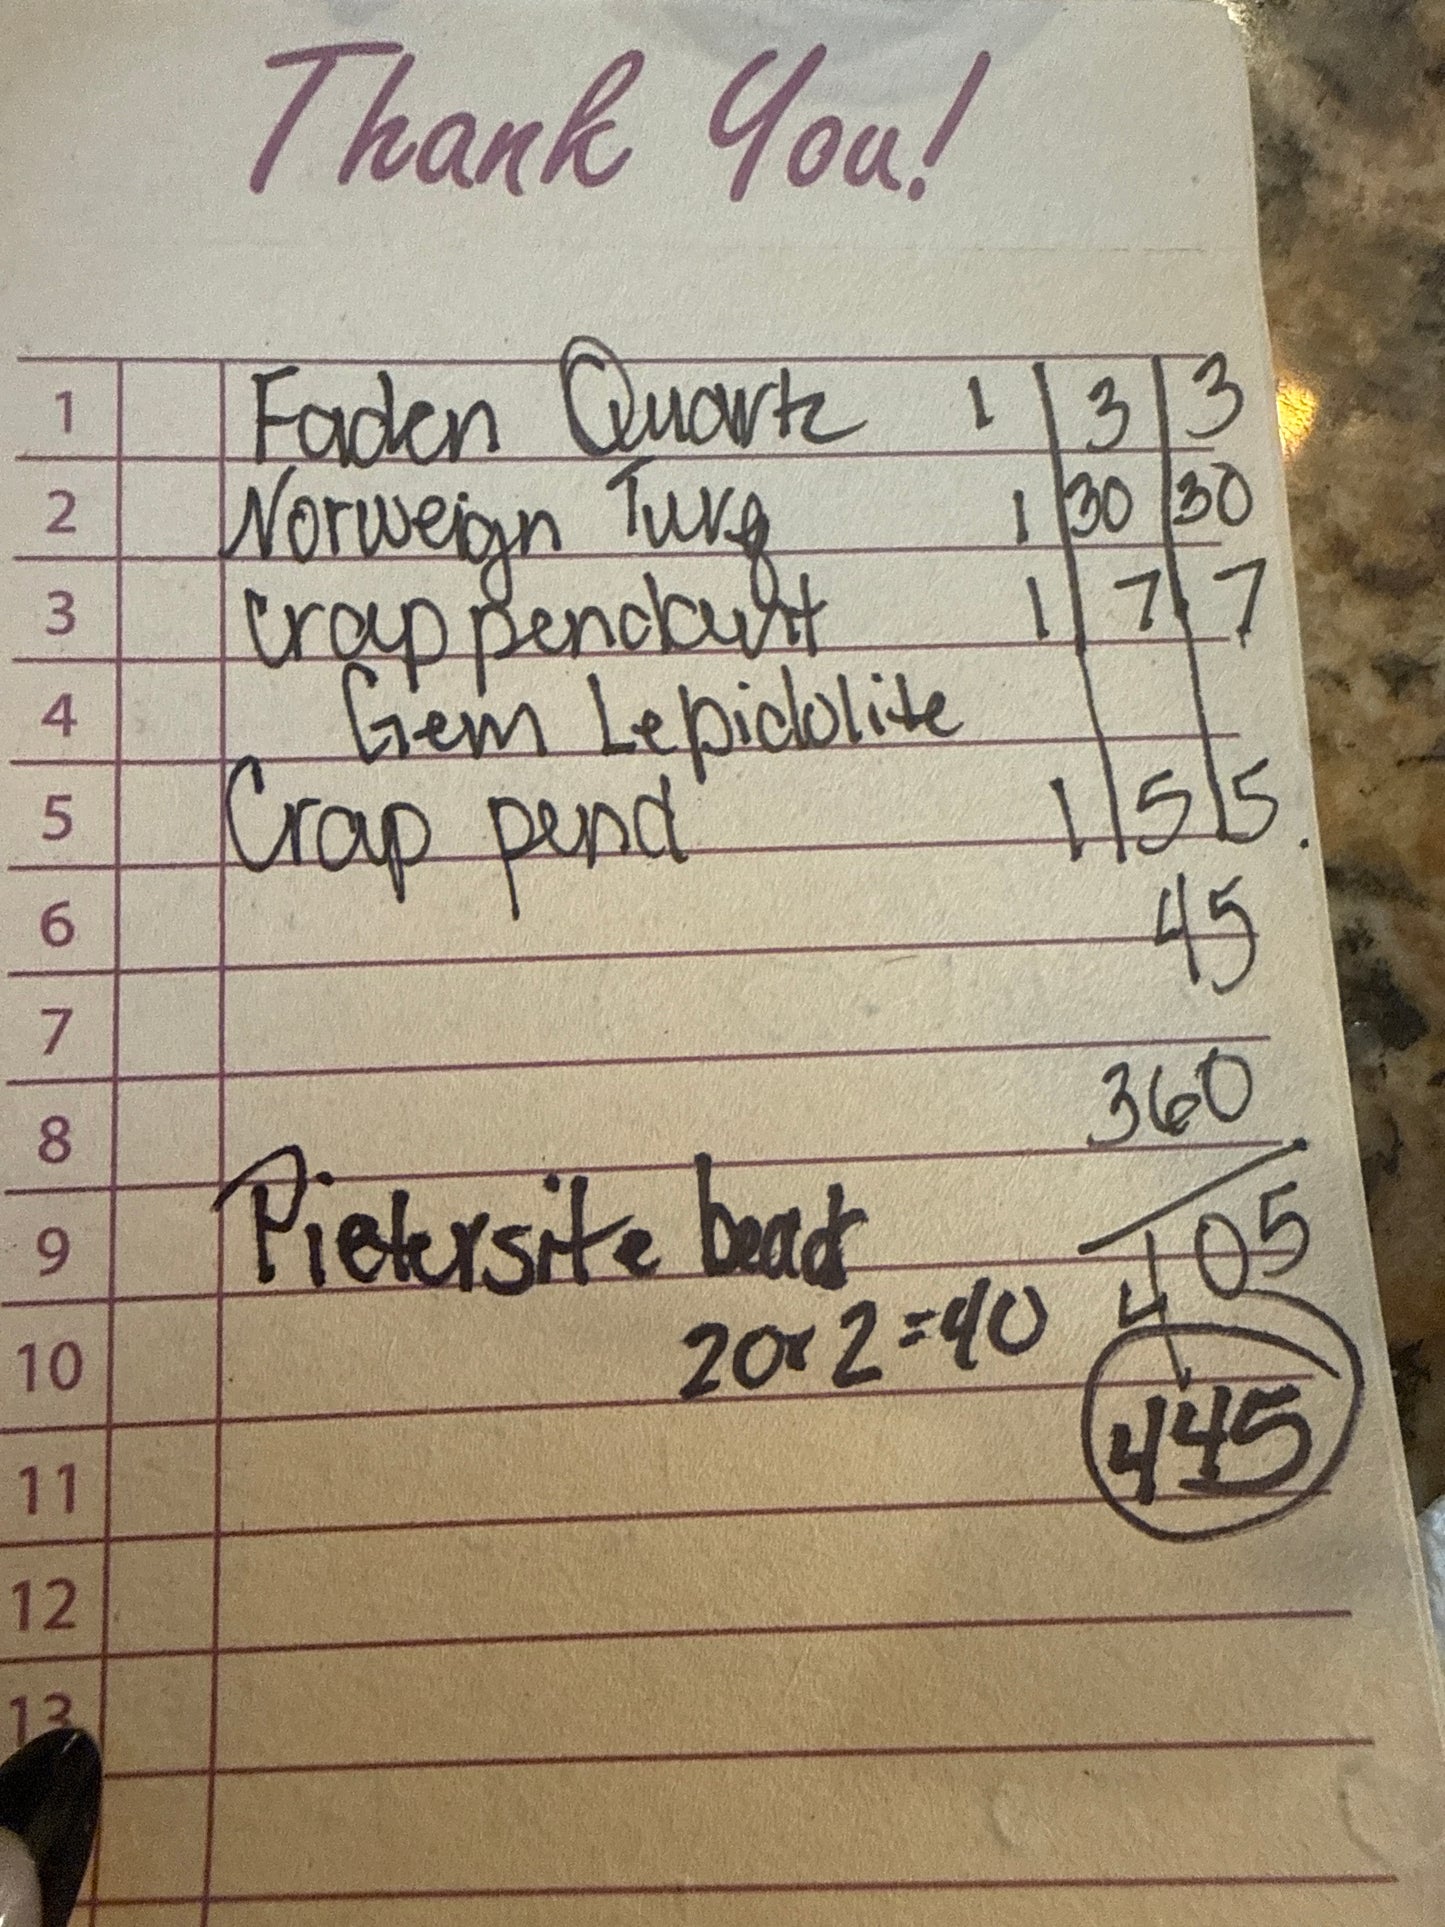 Thank You!
1 Faden Quartz 1 3 3
2 Norweign Turq 1 30 30
3 crap pendant 1 7 7
4 Gem Lepidolite
5 Crap pend 1 5 5
6 45
7
8 360
9 Pietersite beads 405
10 20x2=40
11 445
12
13